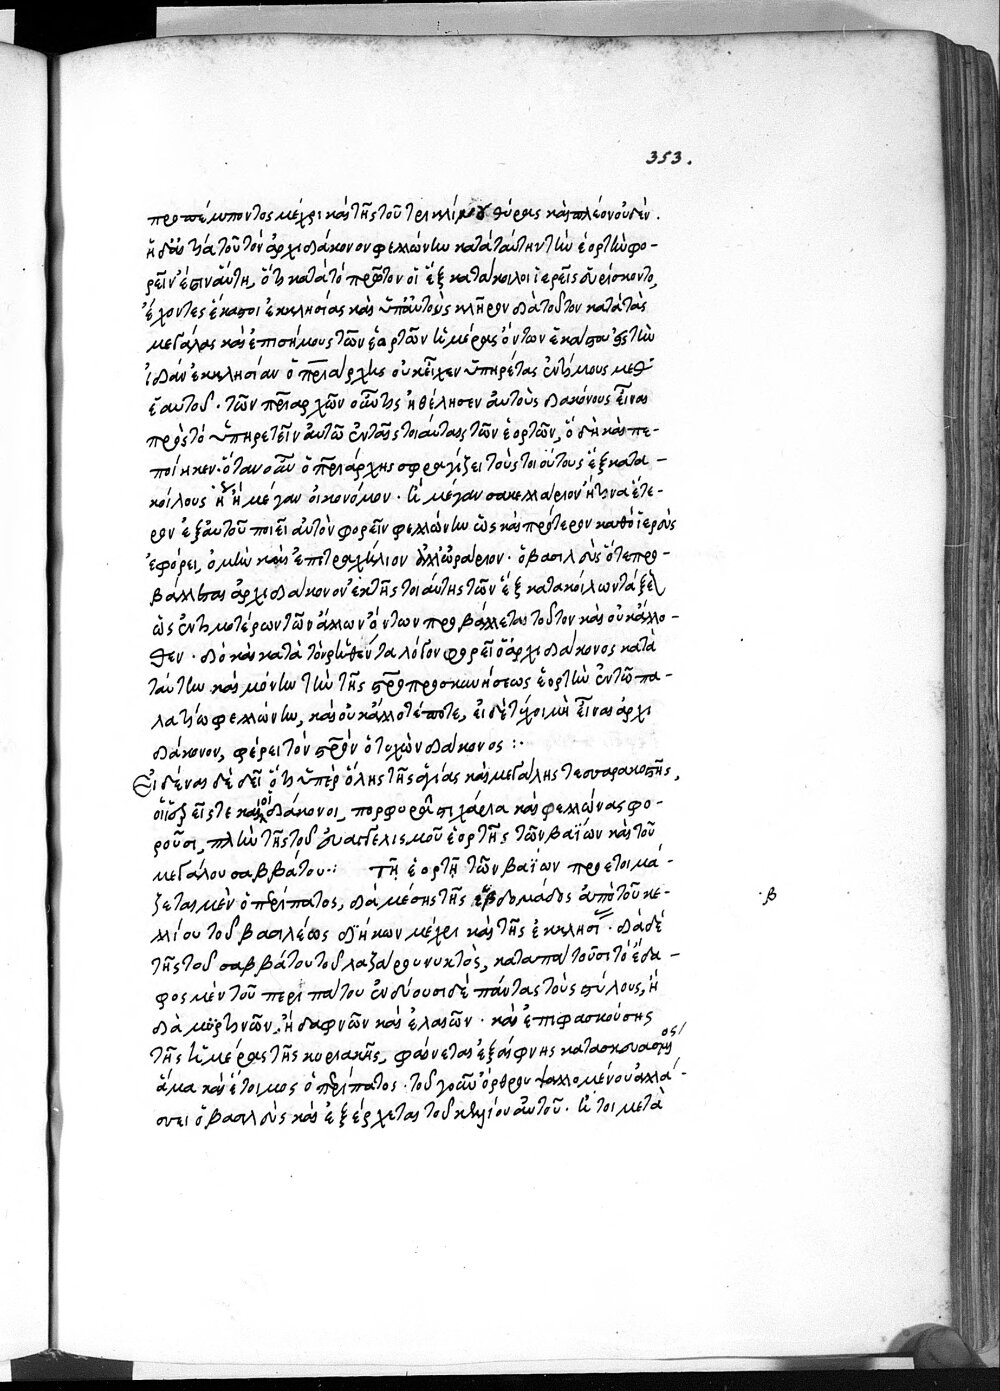 353.
προπέμποντος μέχρι καὶ τῆς τοῦ τρικλίνου θύρας καὶ πλέον οὐδέν.
ἡ δὲ αἰτία τοῦ τὸν ἀρχιδιάκονον φελλώνιν κατὰ ταύτην τὴν ἑορτὴν φο-
ρεῖν ἐστιν αὕτη, ὅτι κατὰ τὸ πρῶτον οἱ ἐξωκατάκοιλοι ἱερεῖς εὑρίσκοντο,
ἔχοντες ἕκαστοι ἐκκλησίας καὶ ὑπ' αὐτοὺς κλῆρον διὰ τοῦτο κατὰ τὰς
μεγάλας καὶ ἐπισήμους τῶν ἑορτῶν ἡμέρας ὄντων ἑκάστου εἰς τὴν
ἰδίαν ἐκκλησίαν ὁ πριάρχης οὐκ εἶχεν ὑπηρέτας ἐντίμους μεθ'
ἑαυτοῦ. τῶν πριαρχῶν οὖν τις ἠθέλησεν αὐτοὺς διακόνους εἶναι
πρὸς τὸ ὑπηρετεῖν αὐτῶ ἐν ταῖς τοιαύταις τῶν ἑορτῶν, ὃ δὴ καὶ πε-
ποίηκεν. ὅταν οὖν ὁ πριάρχης σφραγίζει τοὺς τοιούτους ἐξωκατα-
κοίλους ἢ μέγαν οἰκονόμον. ἢ μέγαν σακελλάριον ἤ τινα ἕτε-
ρον ἐξ αὐτοῦ ποιεῖ αὐτὸν φορεῖν φελλώνιν ὡς καὶ πρότερον καθὸ ἱερεὺς
ἐφόρει, ὁ μὴν καὶ ἐπιτραχήλιον ἀλλ' ὡράριον. ὁ βασιλεὺς ὅτε προ-
βάλληται ἀρχιδιάκονον ἐκ τῆς τοιαύτης τῶν ἐξωκατακοίλων τάξε
ὡς ἐντιμοτέρων τῶν ἄλλων ὄντων προβάλλεται τοῦτον καὶ οὐκ ἄλλο-
θεν. διὸ καὶ κατὰ τὸν ῥηθέντα λόγον φορεῖ ὁ ἀρχιδιάκονος κατὰ
ταύτην καὶ μόνην τὴν τῆς σροπροσκυνήσεως ἑορτὴν ἐν τῶ πα-
λατίω φελλώνιν, καὶ οὐκ ἄλλοτέ ποτε, εἰ δὲ τύχοι μὴ εἶναι ἀρχι
διάκονον, φέρει τὸν σρὸν ὁ τυχὼν διάκονος :·
Εἰδέναι δὲ δεῖ ὅτι ὑπὲρ ὅλης τῆς ἁγίας καὶ μεγάλης τεσσαρακοστῆς,
οἵ τε ἱερεῖς τε καὶ οἱ διάκονοι, πορφυρᾶ στιχάρια καὶ φελλώνας φο-
ροῦσι, πλὴν τῆς τοῦ εὐαγγελισμοῦ ἑορτῆς τῶν βαΐων καὶ τοῦ
μεγάλου σαββάτου·: τῇ ἑορτῇ τῶν βαΐων προετοιμά-
ζεται μὲν ὁ περίπατος, διὰ μέσης τῆς ἑβδομάδος ἀπὸ τοῦ κε-
β
λλίου τοῦ βασιλέως διήκων μέχρι καὶ τῆς ἐκκλησί. διὰ δὲ
τῆς τοῦ σαββάτου τοῦ λαζάρου νυκτὸς, καταπατοῦσι τὸ ἔδα-
φος μὲν τοῦ περιπάτου ἐνδύουσι δὲ πάντας τοὺς στύλους, ἢ
διὰ μυρτινῶν, ἢ δαφνῶν καὶ ἐλαιῶν. καὶ ἐπιφασκούσης
τῆς ἡμέρας τῆς κυριακῆς, φαίνεται ἐξαίφνης κατασκευαστὸς
ἅμα καὶ ἕτοιμος ὁ περίπατος. τοῦ γοῦν ὄρθρου ψαλλομένου ἀλλά-
σσει ὁ βασιλεὺς καὶ ἐξέρχεται τοῦ κελλίου αὐτοῦ. ἤτοι μετὰ